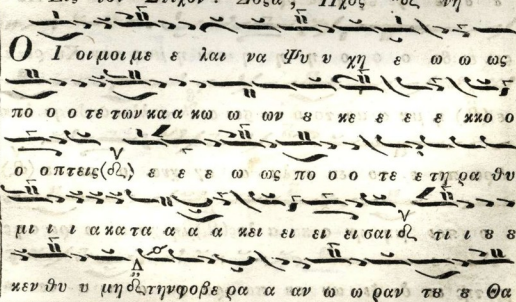 Στίχον. Δόξα, Ἦχος
Ο Ι οι μοι με ε λαι να Ψυ υ χη ε ω ω ως
πο ο ο τε των κα α κω ω ων ȣ κε ε ε ε κκο ο
ο ο πτεις ε ε ε ω ως πο ο ο τε ε τη ρα θυ
μι ι ι α κα τα α α α κει ει ει ει σαι τι ι ȣ ȣ
κεν θυ υ μη την φοβε ρα α αν ω ω ραν τȣ ȣ Θα